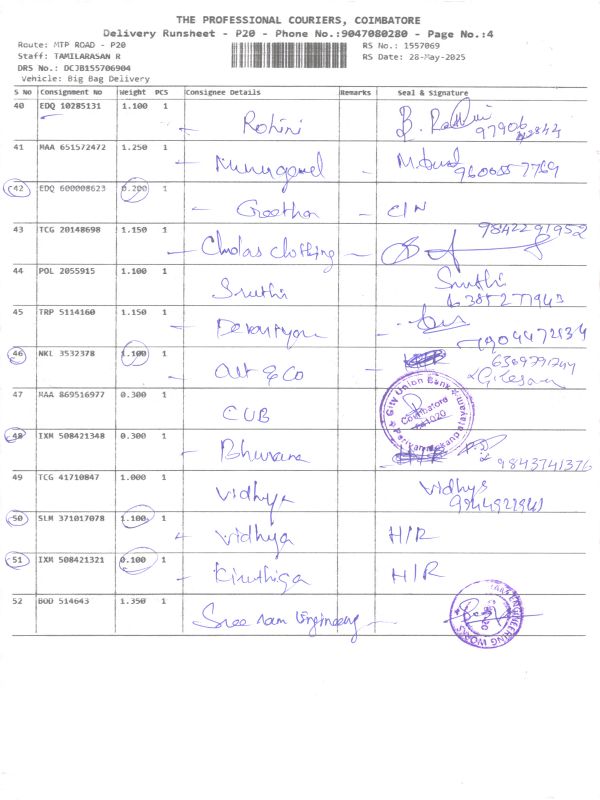 THE PROFESSIONAL COURIERS, COIMBATORE
Delivery Runsheet - P20 - Phone No.:9047080280 - Page No.:4
Route: MTP ROAD - P20 RS No.: 1557069
Staff: TAMILARASAN R RS Date: 28-May-2025
DRS No.: DCJB155706904
Vehicle: Big Bag Delivery
S No Consignment No Weight PCS Consignee Details Remarks Seal & Signature
40 EDQ 10285131 1.100 1 Rohini
41 MAA 651572472 1.250 1 Murugavel
42 EDQ 600008623 0.200 1 Geetha C/N
43 TCG 20148698 1.150 1 Cholas Clothing 9842291952
44 POL 2055915 1.100 1 Sruthi Sruthi
45 TRP 5114160 1.150 1
46 NKL 3532378 1.100 1 & Co
47 MAA 869516977 0.300 1 CUB City Union Bank Coimbatore
48 IXM 508421348 0.300 1 Bhuvana 9843741376
49 TCG 41710847 1.000 1 Vidhya Vidhya
50 SLM 371017078 1.100 1 Vidhya H/R
51 IXM 508421321 0.100 1 Kiruthiga H/R
52 BOD 514643 1.350 1 Sree ram Engineering ENGINEERING WORKS